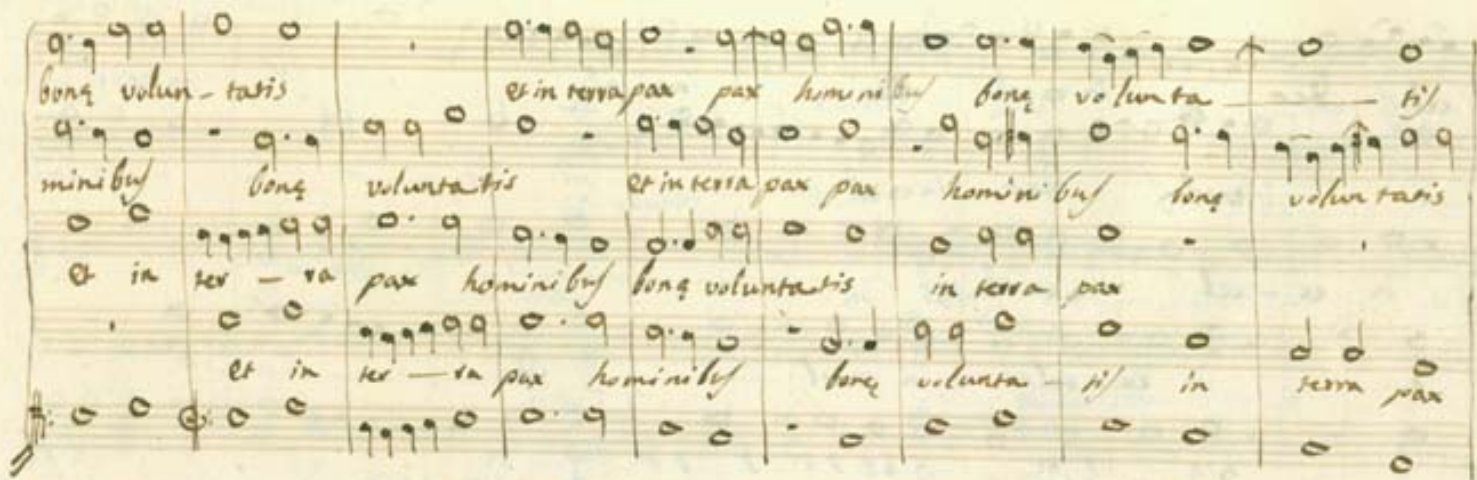 bonę volun - tatis et in terra pax pax hominibuſ bonę volunta - tiſ
minibuſ bonę voluntatis et in terra pax pax hominibuſ bonę voluntatis
et in ter - ra pax hominibuſ bonę voluntatis in terra pax
et in ter - ra pax hominibuſ bonę volunta - tiſ in terra pax